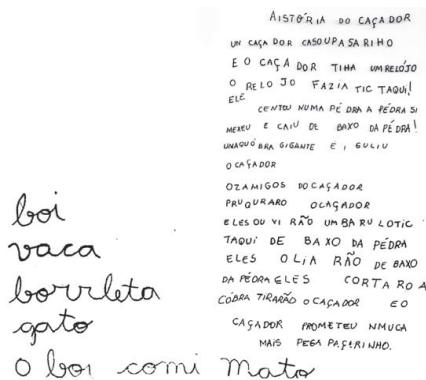 AISTÓRIA DO CAÇADOR
UN CAÇADOR CASOUPASARIHO
E O CAÇADOR TIHA UMRELÓJO
O RELOJO FAZIA TIC TAQUI!
ELE
CENTOU NUMA PÉDRA A PÉDRA SI
MEXEU E CAIU DE BAXO DA PÉDRA!
UNAQUÓBRA GIGANTE E, GULIU
O CAÇADOR
OZAMIGOS DO CAÇADOR
PRUQURARO OLAÇADOR
ELES OUVIRÃO UM BARULOTIC
TAQUI DE BAXO DA PÉDRA
ELES OLIARÃO DE BAXO
DA PÉDRA ELES CORTARO A
CÓBRA TIRARÃO O CAÇADOR E O
CAÇADOR PROMETEU NMUCA
MAIS PEGA PAÇARINHO.
boi
vaca
borrleta
gato
O boi comi mato